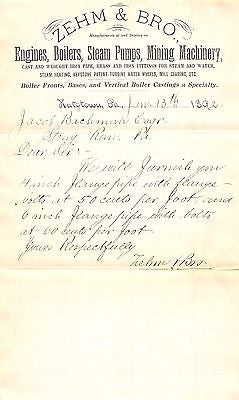 ZEHM & BRO.,
Manufacturers of and Dealers in
Engines, Boilers, Steam Pumps, Mining Machinery,
CAST AND WROUGHT IRON PIPE, BRASS AND IRON FITTINGS FOR STEAM AND WATER,
STEAM HEATING, KEYSTONE PATENT TURBINE WATER WHEELS, MILL GEARING, ETC.
Boiler Fronts, Bases, and Vertical Boiler Castings a Specialty.
Kutztown, Pa., 13th 1892
Jacob Bachman Esqr
Stony Run, Pa.
Dear Sir:-
We will furnish you
4 inch flange pipe with flange
bolts at 50 cents per foot, and
6 inch flange pipe with bolts
at 60 cents per foot
Yours Respectfully
Zehm & Bro.